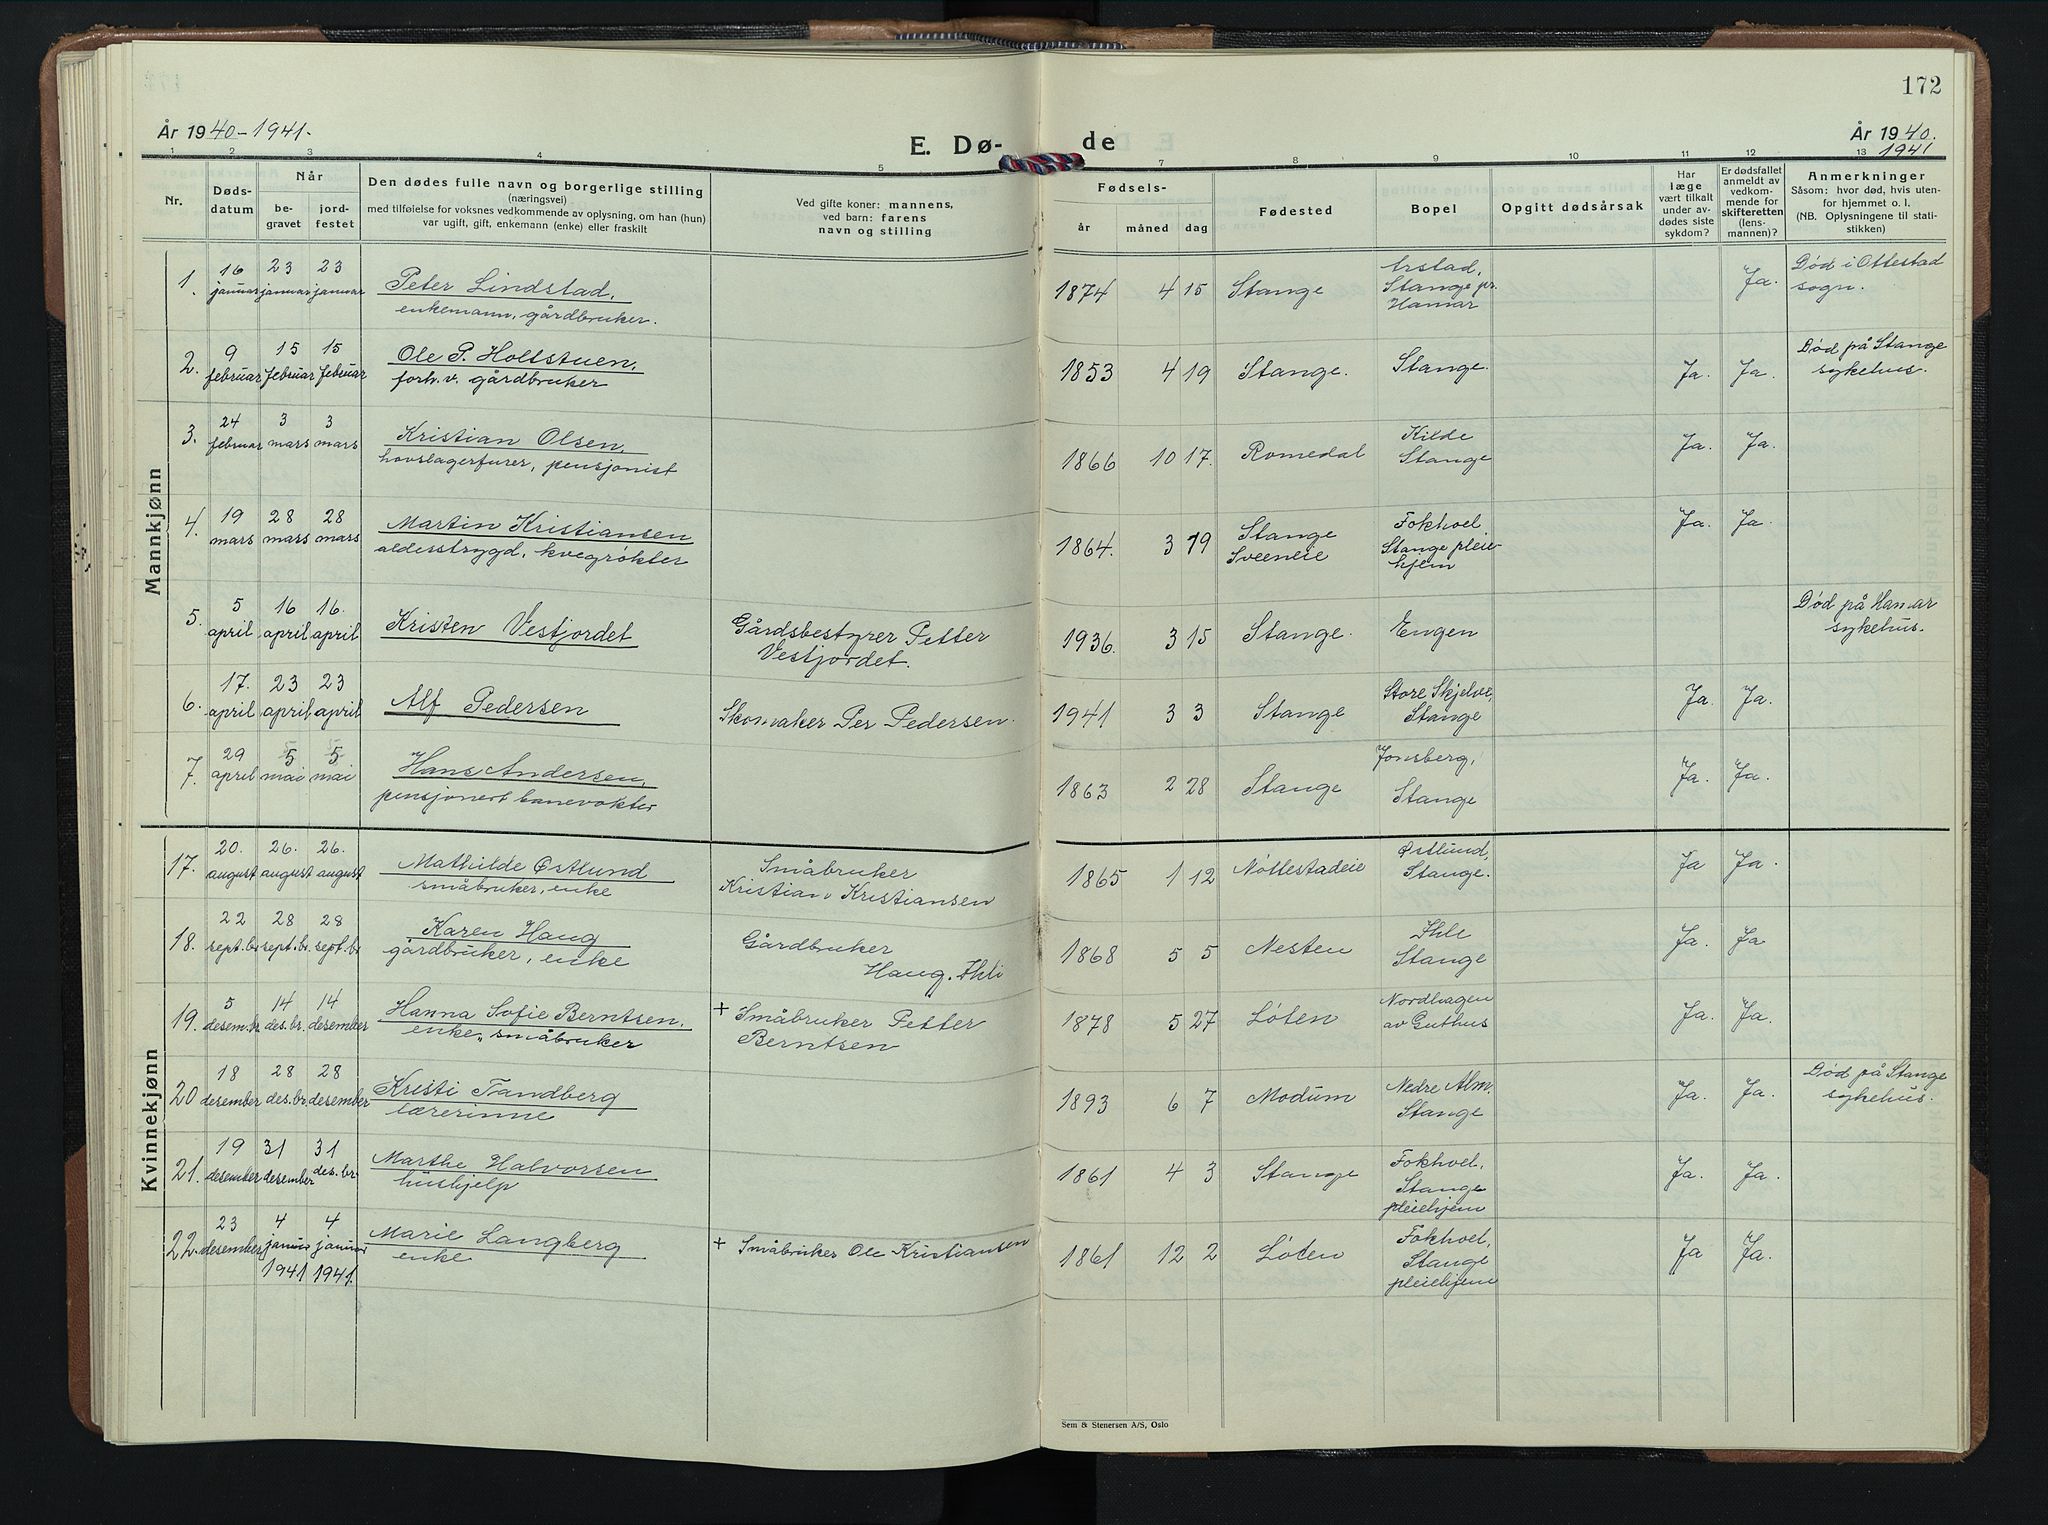 172
År 1940-1941.
E. Dø-
de
År 1940.
1941
1 2 3 4 5 7 8 9 10 11 12 13
Nr.
Døds-
datum
Når
be-
gravet
jord-
festet
Den dødes fulle navn og borgerlige stilling
(næringsvei)
med tilføielse for voksnes vedkommende av oplysning, om han (hun)
var ugift, gift, enkemann (enke) eller fraskilt
Ved gifte koner: mannens,
ved barn: farens
navn og stilling
Fødsels-
år måned dag
Fødested
Bopel
Opgitt dødsårsak
Har
læge
vært tilkalt
under av-
dødes siste
sykdom?
Er dødsfallet
anmeldt av
vedkom-
mende for
skifteretten
(lens-
mannen)?
Anmerkninger
Såsom: hvor død, hvis uten-
for hjemmet o. l.
(NB. Oplysningene til stati-
stikken)
Mannkjønn
1. 16 januar 23 januar 23 januar Peter Lindstad,
enkemann, gårdbruker.
1874 4 15 Stange
Stange pr.
Hamar
Ja.
Død i Ottestad
sogn.
2. 9 februar 15 februar 15 februar Ole P. Holtstuen,
forh.v. gårdbruker
1853 4 19 Stange. Stange. Ja. Ja.
Død på Stange
sykehus.
3. 24 februar 3 mars 3 mars Kristian Olsen,
hovslagerfurer, pensjonist
1866 10 17. Romedal Kilde
Stange
Ja. Ja.
4. 19 mars 28 mars 28 mars Martin Kristiansen
alderstrygd, kvegrøkter
1864. 3 19 Stange
Sveeneie
Fokhoel,
Stange pleie-
hjem
Ja. Ja.
5. 5 april 16 april 16. april Kristen Vestjordet
Gårdsbestyrer Petter
Vestjordet.
1936. 3 15 Stange. Engen
Død på Hamar
sykehus.
6. 17. april 23 april 23 april Alf Pedersen
Skomaker Per Pedersen.
1941 3 3 Stange Store Skjelve,
Stange
Ja. Ja.
7. 29 april 5 mai 5 mai Hans Andersen,
pensjonert banevokter
1863 2 28 Stange Jonsberg,
Stange
Ja. Ja.
Kvinnekjønn
17. 20. august 26. august 26. august Mathilde Østlund
småbruker, enke
Småbruker
Kristian Kristiansen
1865 1 12 Nøttestadeie Østlund,
Stange.
Ja Ja.
18. 22 sept.br. 28 sept.br. 28 sept.br Karen Haug
gårdbruker, enke
Gårdbruker
Haug, Ihli
1868 5 5 Nesten Ihle
Stange
Ja. Ja
19. 5 desem.br 14 des.br. 14 desember Hanna Sofie Berntsen,
enke, småbruker
+ Småbruker Petter
Berntsen
1878 5 27 Løten Nordhagen
av Guthus
Ja. Ja.
20 18 desember 28 des.br. 28 desember Kristi Trandberg
lærerinne
1893 6 7 Modum Nedre Alm,
Stange
Ja. Ja.
Død på Stange
sykehus.
21. 19 desember 31 desember 31 des.br. Marthe Halvorsen
hushjelp
1861 4 3 Stange Fokhoel,
Stange
pleiehjem
Ja. Ja.
22. 23 desember 4 januar 1941 4 januar 1941. Marie Langberg
enke
+ Småbruker Ole Kristiansen
1861 12 2 Løten Fokhoel,
Stange
pleiehjem
Ja Ja.
Sem & Stenersen A/S, Oslo